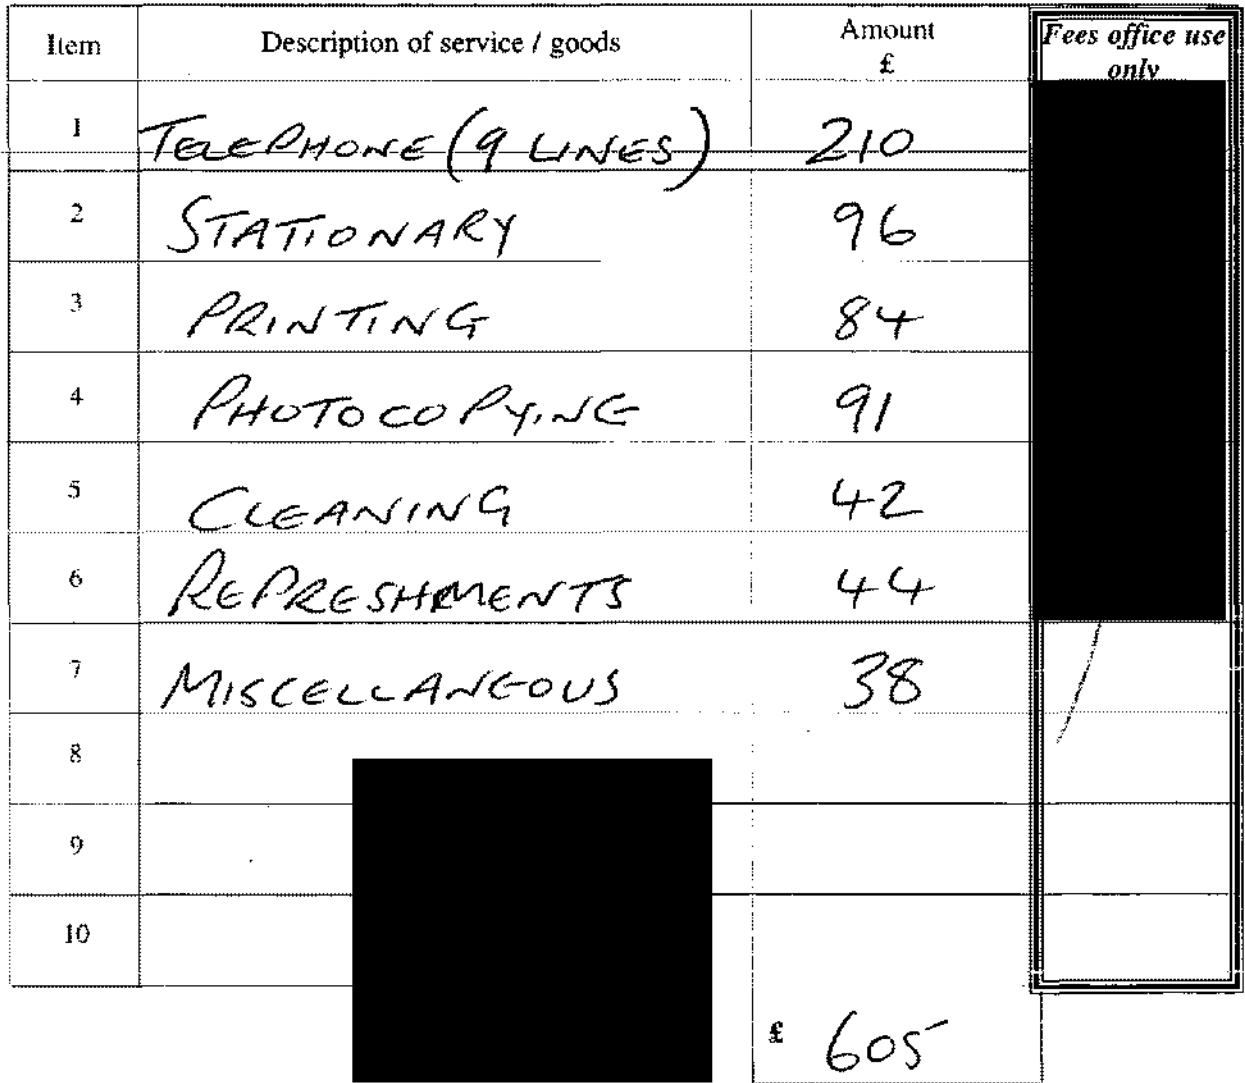 Item Description of service / goods Amount £ Fees office use only
1 TELEPHONE (9 LINES) 210
2 STATIONARY 96
3 PRINTING 84
4 PHOTOCOPYING 91
5 CLEANING 42
6 REFRESHMENTS 44
7 MISCELLANEOUS 38
8
9
10
£ 605